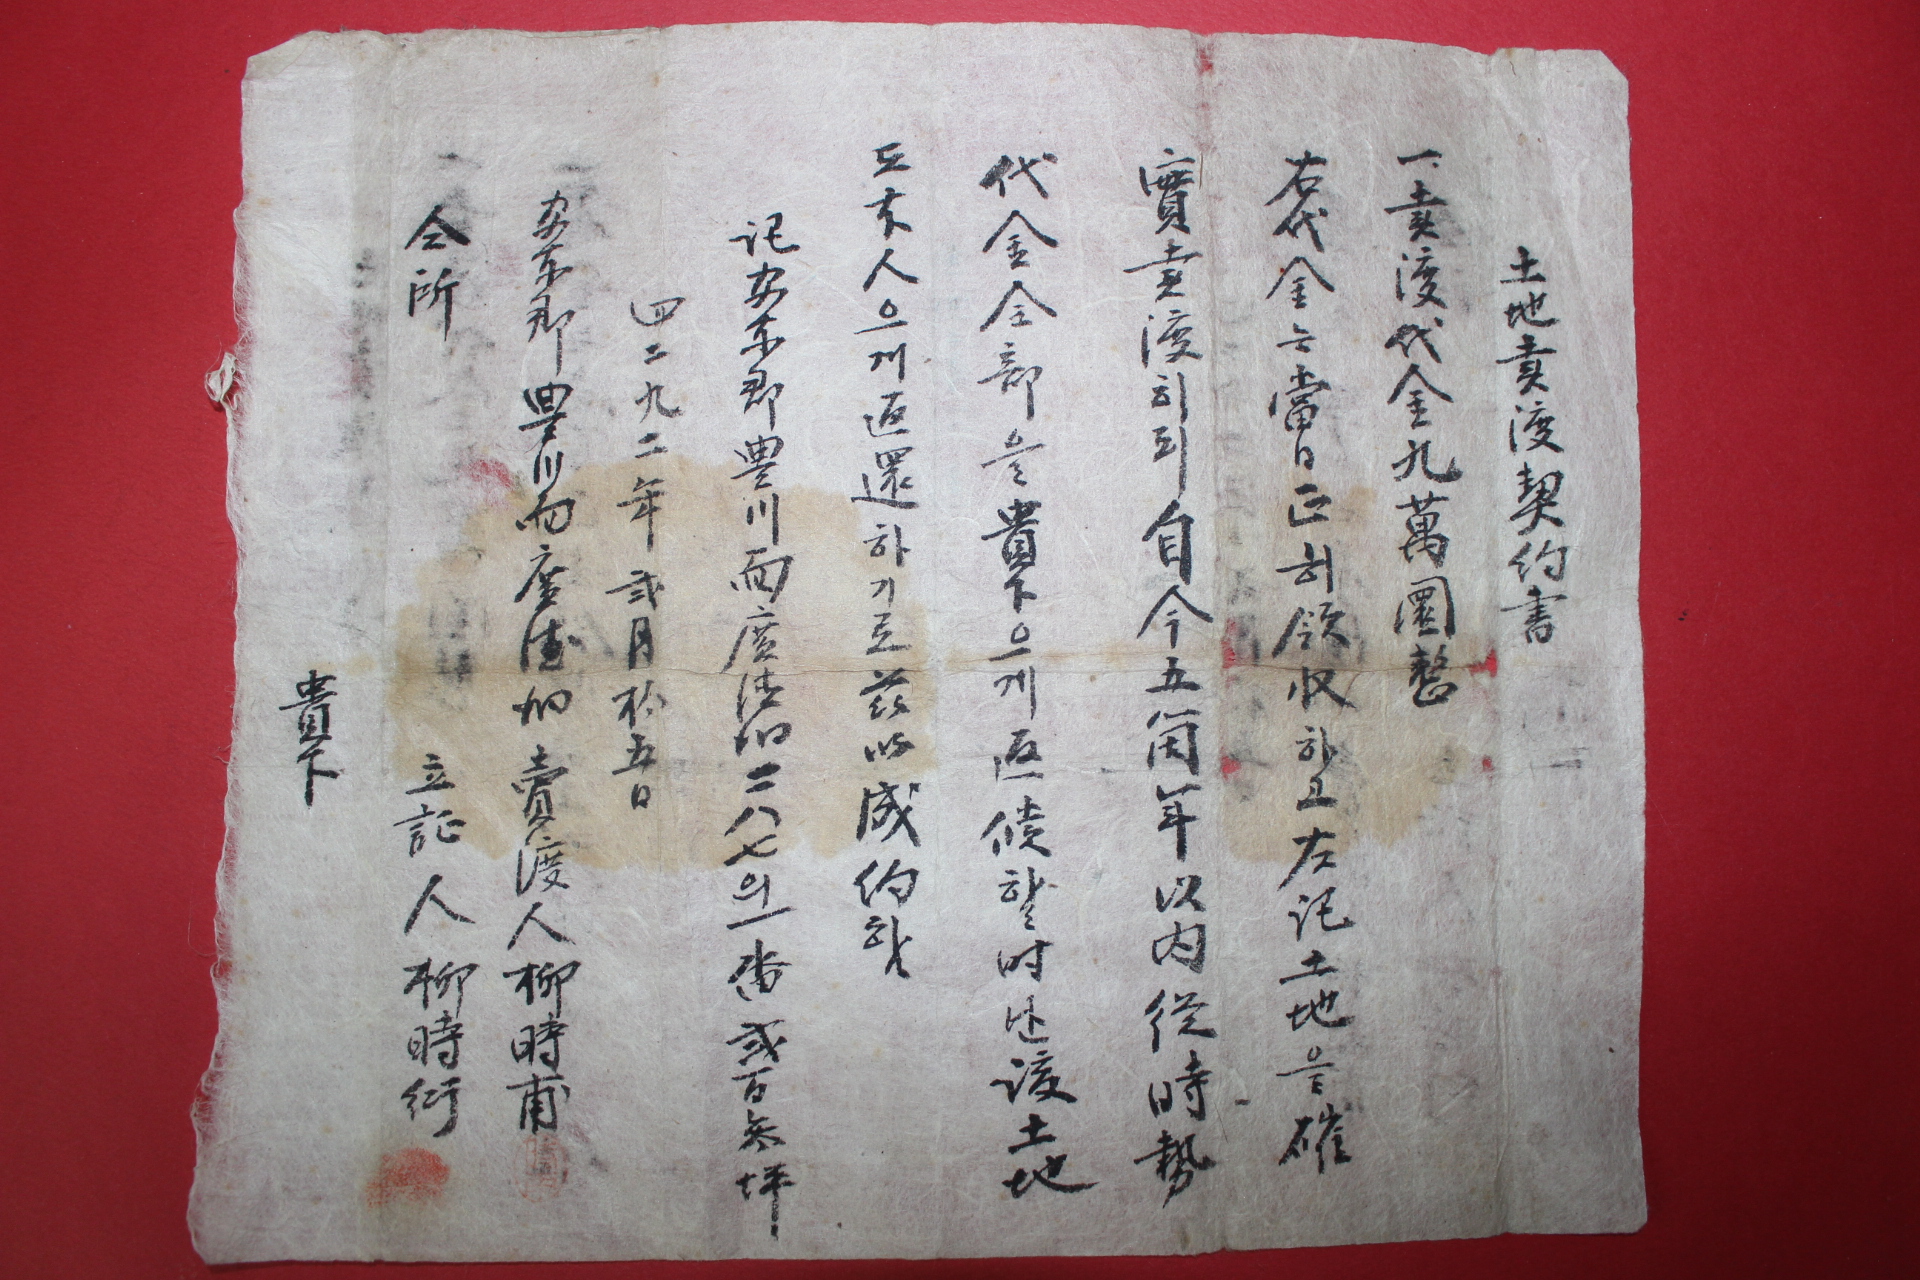 土地賣渡契約書
一. 賣渡代金九萬圜整
右代金은當日正히領收하고左記土地를確
實賣渡히되自今五箇年以内從時勢
代金全部을貴下으게返償할時난該土地
도本人으게返還하기로玆以成約함
記安東郡豊川面廣德洞二八七의一番 貳百參坪
四二九二年貳月拾五日
安東郡豊川面廣德洞 賣渡人 柳時甫
仝所 立証人 柳時衍
貴下